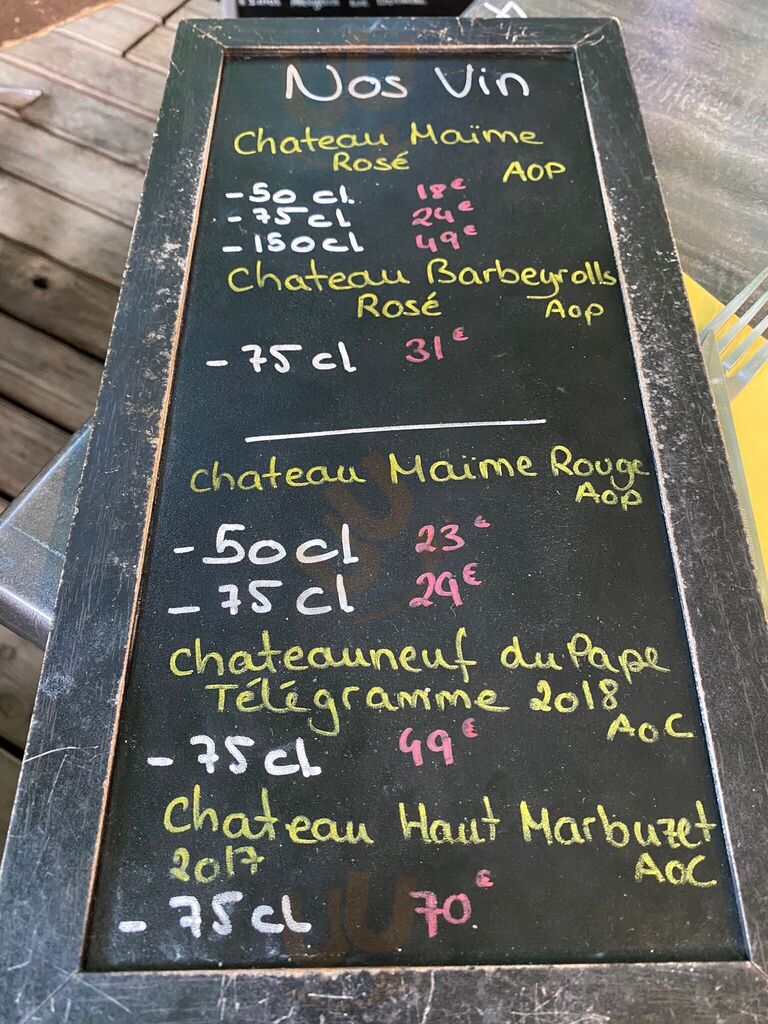 Nos Vin
Chateau Maïme
Rosé AOP
- 50 cl. 18€
- 75 cl 24€
- 150 cl 49€
Chateau Barbeyrolls
Rosé Aop
- 75 cl 31€
Chateau Maïme Rouge
Aop
- 50 cl 23€
- 75 cl 29€
Chateauneuf du Pape
Télégramme 2018
AOC
- 75 cl 49€
Chateau Haut Marbuzet
2017 AOC
- 75 cl 70€